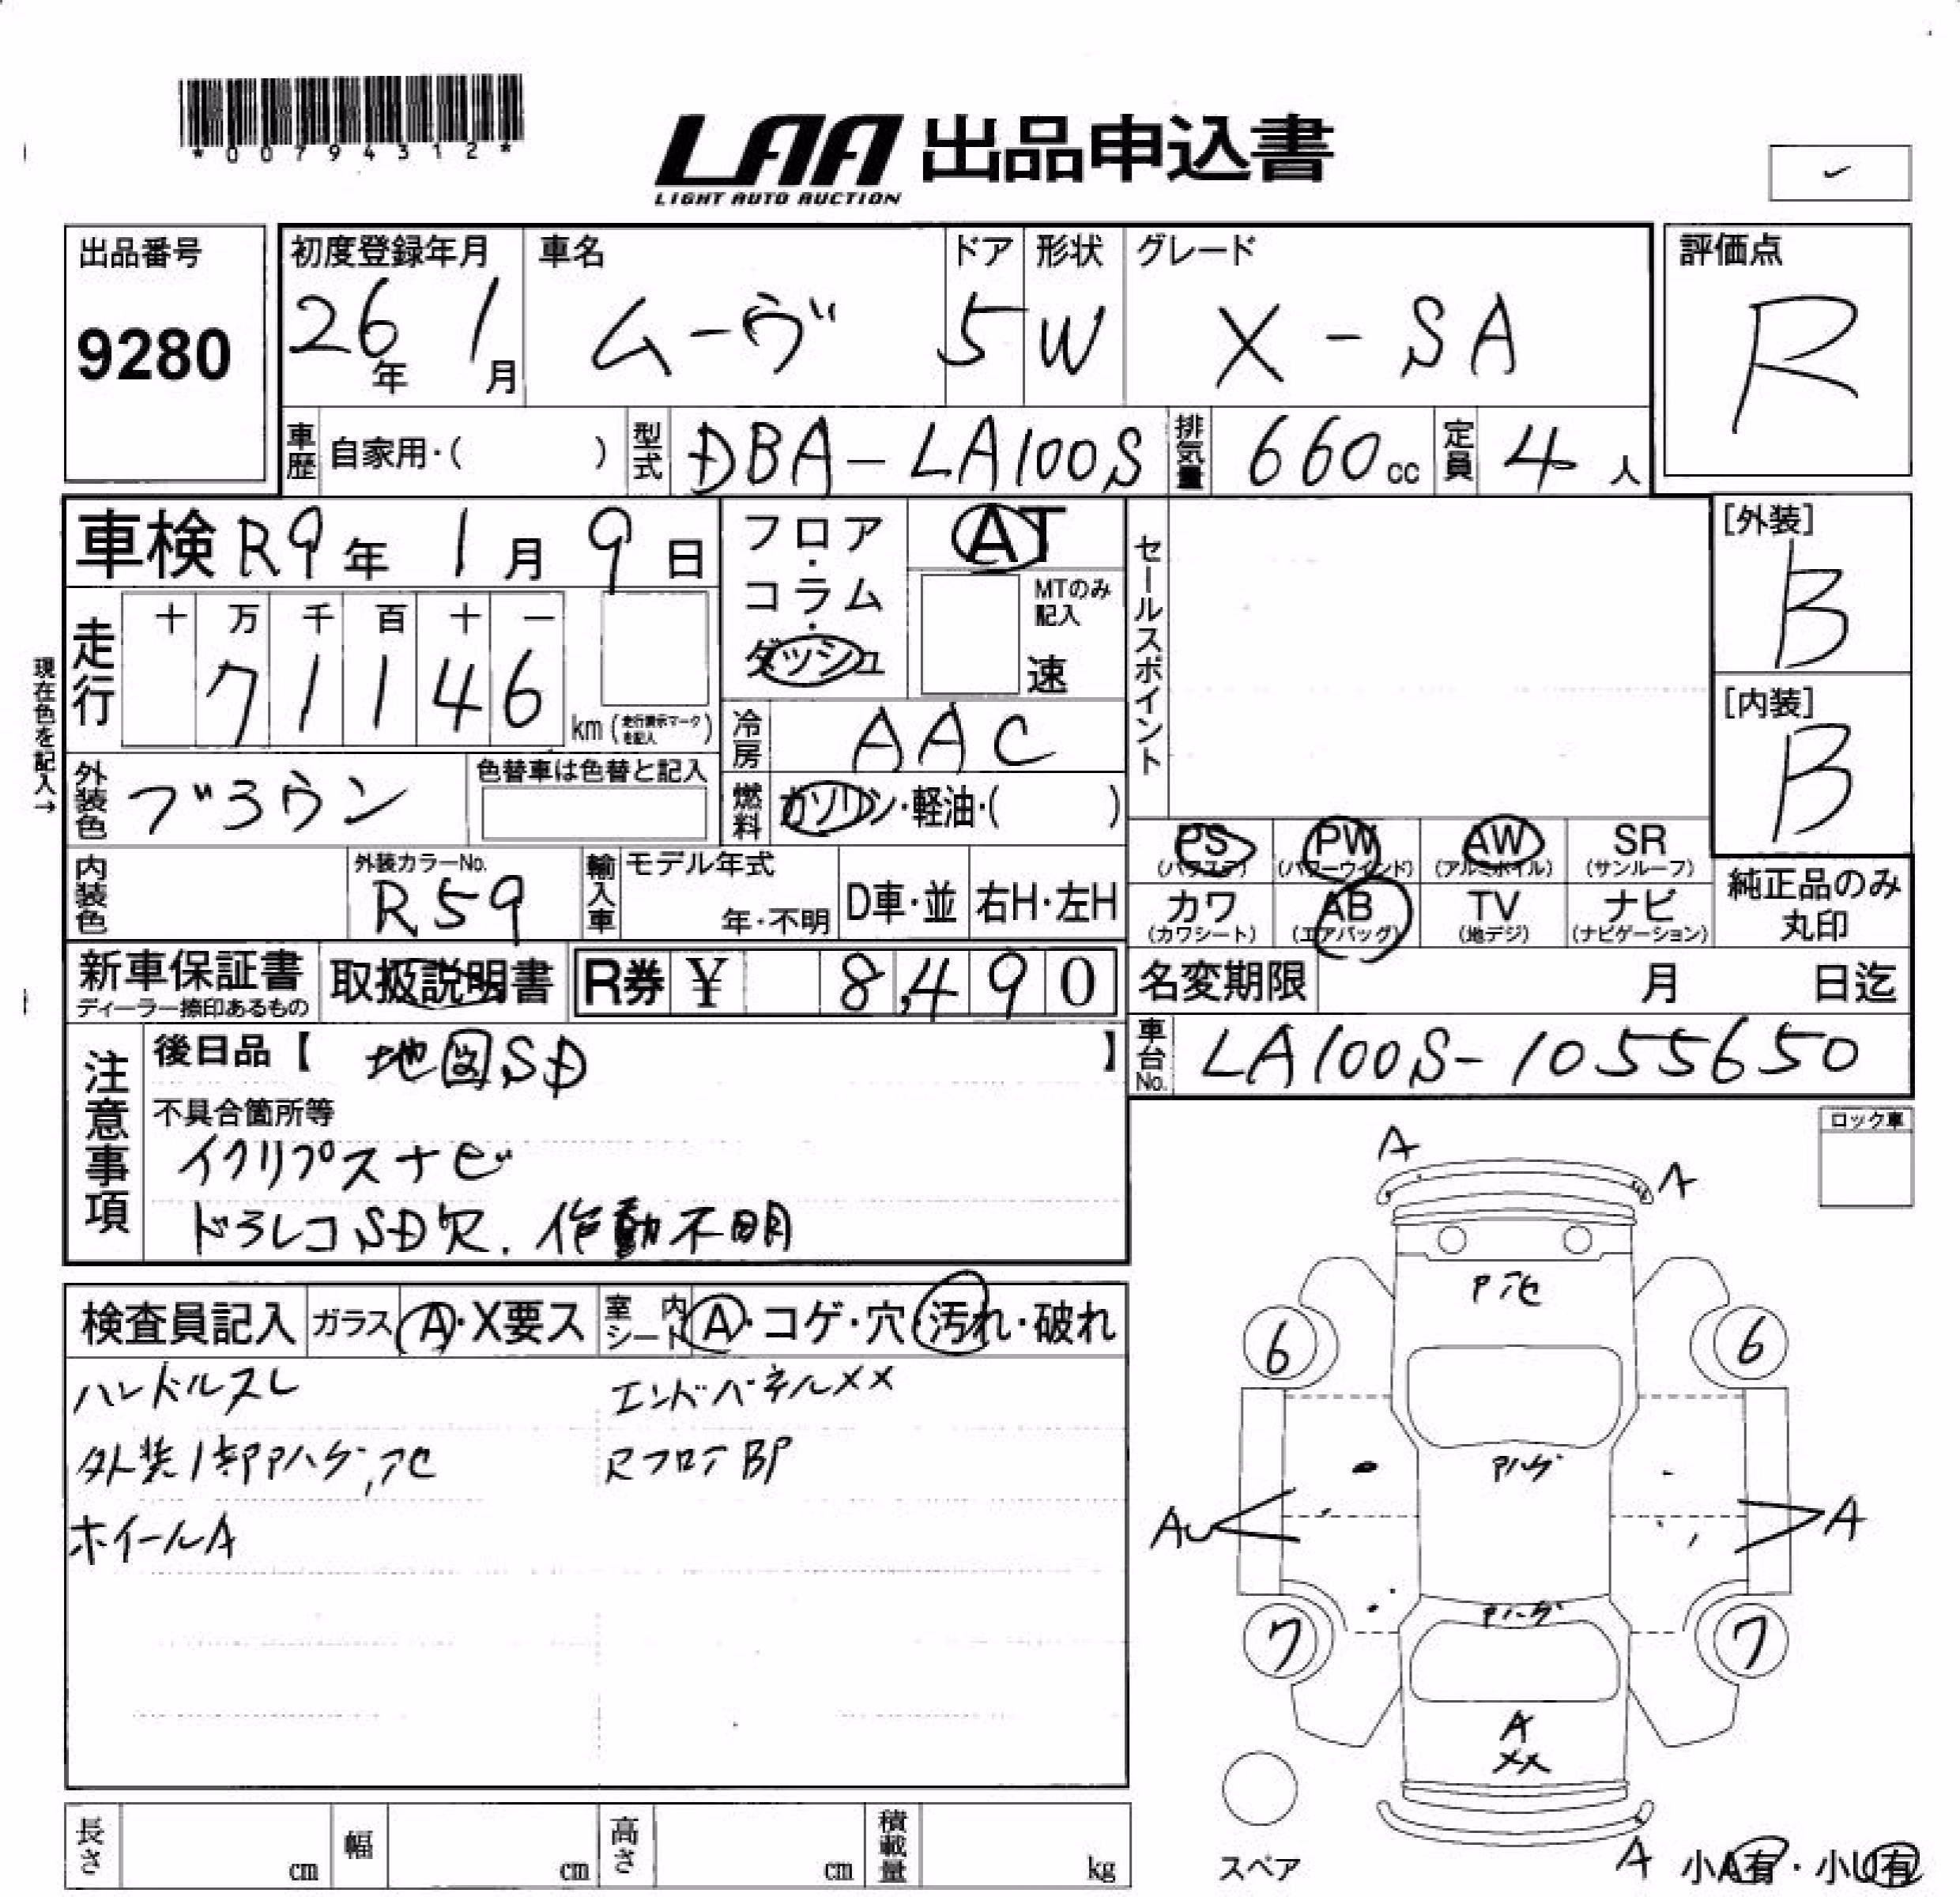 *00794312*
LAA 出品申込書
LIGHT AUTO AUCTION
出品番号
9280
初度登録年月
26年 1月
車名
ムーヴ
ドア
5
形状
W
グレード
X-SA
評価点
R
車歴 自家用・( )
型式 DBA-LA100S
排気量 660cc
定員 4人
車検 R9年 1月 9日
フロア・コラム・ダッシュ
AT
MTのみ記入
速
セールスポイント
[外装]
B
[内装]
B
現在色を記入→
走行
十 万 千 百 十 一
7 1 1 4 6
km (走行表示マークを記入)
冷房 AAC
外装色 ブラウン
色替車は色替と記入
燃料 ガソリン・軽油・( )
PS (パワステ)
PW (パワーウインド)
AW (アルミホイル)
SR (サンルーフ)
カワ (カワシート)
AB (エアバッグ)
TV (地デジ)
ナビ (ナビゲーション)
純正品のみ丸印
内装色
外装カラーNo.
R59
輸入車
モデル年式
年・不明
D車・並
右H・左H
新車保証書
ディーラー捺印あるもの
取扱説明書
R券 ¥ 8,490
名変期限 月 日迄
車台No. LA100S-1055650
注意事項
後日品【 地図SD 】
不具合箇所等
イクリプスナビ
ドラレコSD欠. 作動不明
ロック車
検査員記入
ガラス A・X要ス
室内シート A・コゲ・穴・汚れ・破れ
ハンドルスレ
エンドパネルXX
外装1部Pハゲ,
Rフロア BP
ホイールA
A
A
P
6
6
Pハゲ
AU
A
Pハゲ
7
7
A
XX
スペア
A
小A有・小U有
長さ cm
幅 cm
高さ cm
積載量 kg